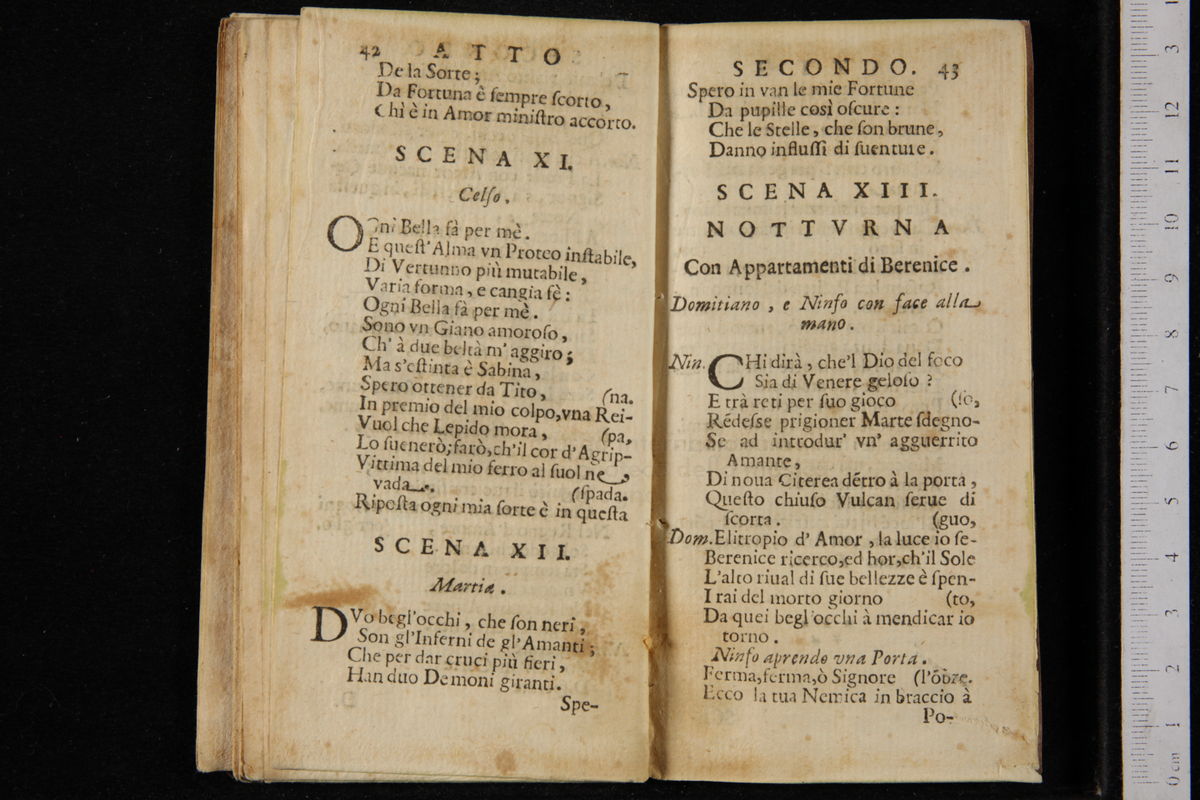 42 ATTO
De la Sorte;
Da Fortuna è sempre scorto,
Chi è in Amor ministro accorto.
SCENA XI.
Celso.
OGni Bella fà per mè.
E quest'Alma vn Proteo instabile,
Di Vertunno più mutabile,
Varia forma, e cangia fè:
Ogni Bella fà per mè.
Sono vn Giano amoroso,
Ch' à due beltà m' aggiro;
Ma s'estinta è Sabina,
Spero ottener da Tito, (na.
In premio del mio colpo, vna Rei-
Vuol che Lepido mora, (pa,
Lo suenerò; farò, ch'il cor d'Agrip-
Vittima del mio ferro al suol ne
vada. (spada.
Riposta ogni mia sorte è in questa
SCENA XII.
Martia.
DVo begl'occhi, che son neri,
Son gl'Inferni de gl'Amanti;
Che per dar cruci più fieri,
Han duo Demoni giranti.
Spe-
SECONDO. 43
Spero in van le mie Fortune
Da pupille così oscure:
Che le Stelle, che son brune,
Danno influssi di suenture.
SCENA XIII.
NOTTVRNA
Con Appartamenti di Berenice.
Domitiano, e Ninfo con face alla
mano.
Nin. CHi dirà, che'l Dio del foco
Sia di Venere geloso?
E trà reti per suo gioco (so,
Rēdesse prigioner Marte sdegno-
Se ad introdur' vn' agguerrito
Amante,
Di noua Citerea dētro à la porta,
Questo chiuso Vulcan serue di
scorta. (guo,
Dom. Elitropio d' Amor, la luce io se-
Berenice ricerco, ed hor, ch'il Sole
L'alto riual di sue bellezze è spen-
I rai del morto giorno (to,
Da quei begl'occhi à mendicar io
torno.
Ninfo aprendo vna Porta.
Ferma, ferma, ò Signore (l'ōbre.
Ecco la tua Nemica in braccio à
Po-
0 cm 1 2 3 4 5 6 7 8 9 10 11 12 13